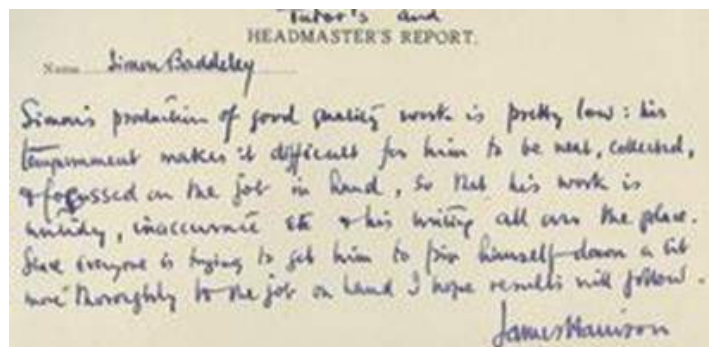 Tutor's and
HEADMASTER'S REPORT.
Name Simon Baddeley
Simon's production of good quality work is pretty low: his
temperament makes it difficult for him to be neat, collected,
& focussed on the job in hand, so that his work is
untidy, inaccurate etc & his writing all over the place.
Since everyone is trying to get him to pin himself down a bit
more thoroughly to the job on hand I hope results will follow.
James Harrison